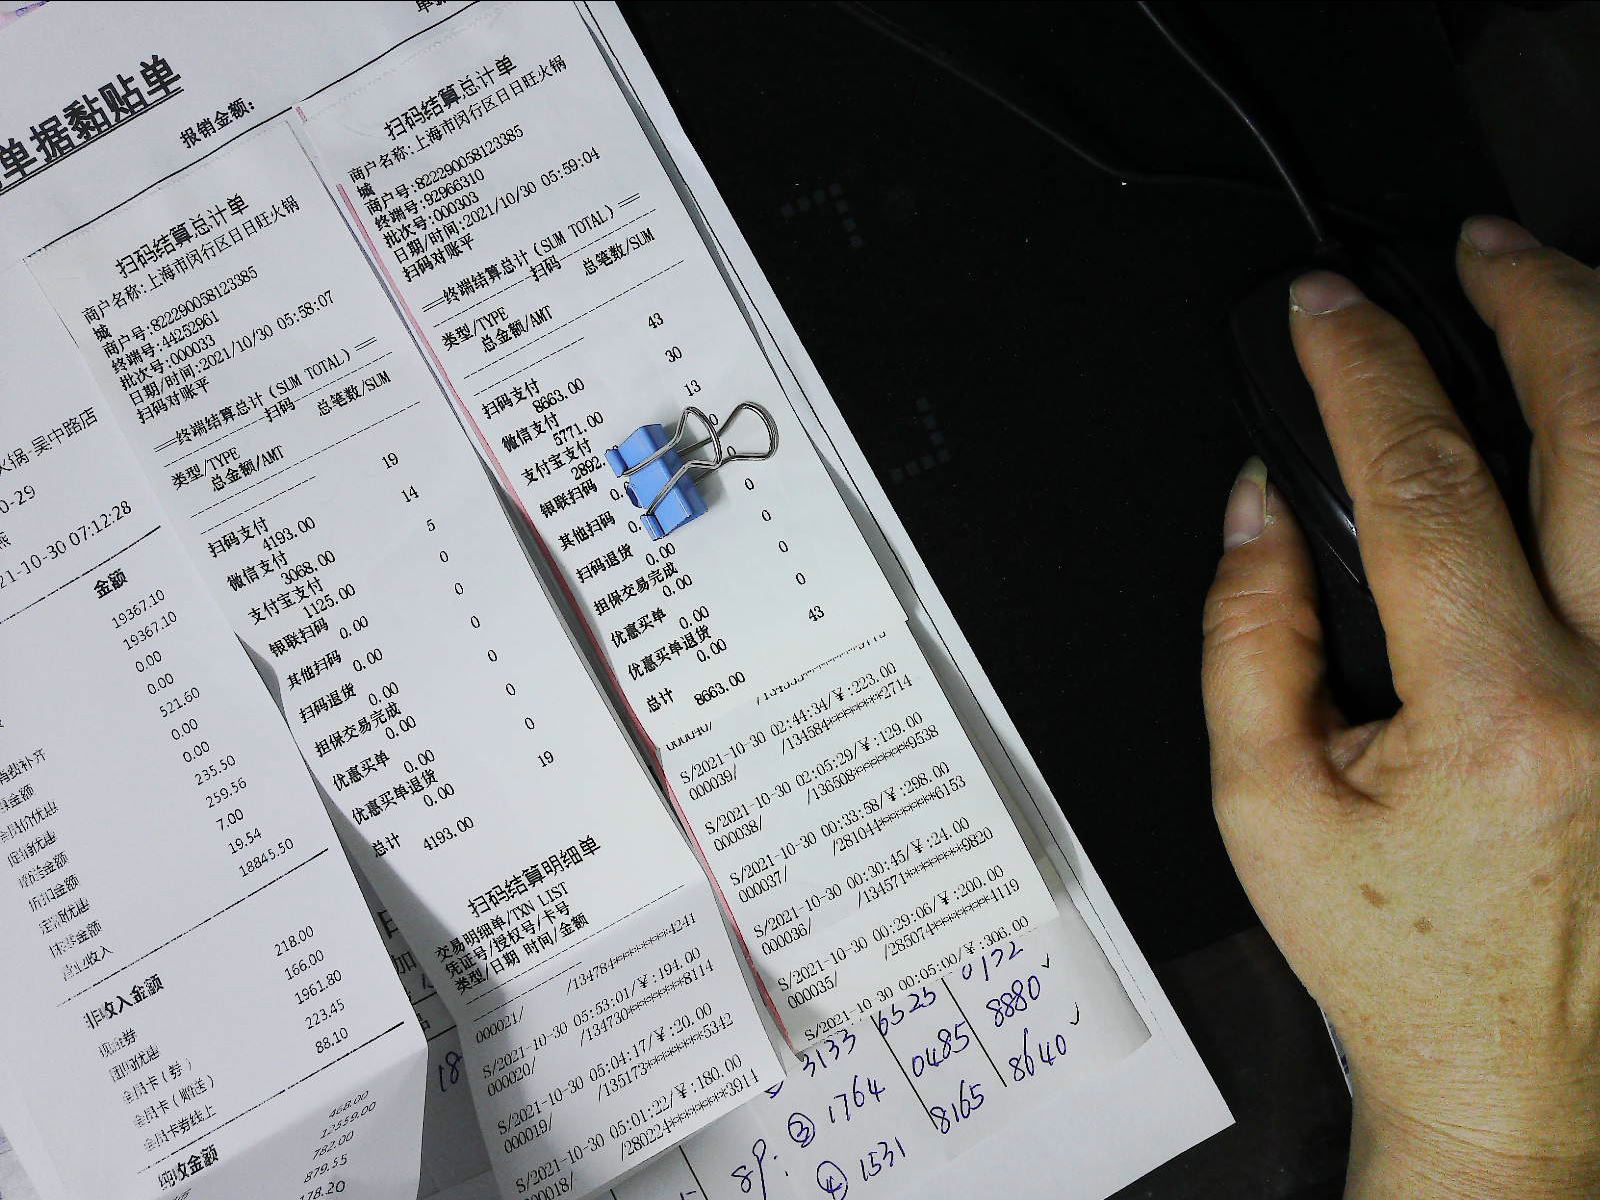 单据黏贴单
报销金额：
火锅-吴中路店
0-29
21-10-30 07:12:28
金额
19367.10
19367.10
0.00
0.00
521.60
0.00
0.00
235.50
259.56
7.00
19.54
18845.50
非收入金额
218.00
166.00
1961.80
223.45
88.10
团购优惠
会员卡（券）
会员卡（赠送）
会员卡券线上
纯收金额
468.00
12559.00
782.00
879.55
178.20
扫码结算总计单
商户名称:上海市闵行区日日旺火锅
城
商户号:822290058123385
终端号:44252961
批次号:000033
日期/时间:2021/10/30 05:58:07
扫码对账平
==终端结算总计(SLM TOTAL)==
扫码
类型/TYPE 总笔数/SLM
总金额/AMT
扫码支付 19
4193.00
微信支付 14
3068.00
支付宝支付 5
1125.00
银联扫码 0
0.00
其他扫码 0
0.00
扫码退货 0
0.00
担保交易完成 0
0.00
优惠买单 0
0.00
优惠买单退货 0
0.00
总计 19
4193.00
扫码结算明细单
交易明细单/TXN LIST
凭证号/授权号/卡号
类型/日期 时间/金额
000021/ /134784*******4241
S/2021-10-30 05:53:01/¥:194.00
000020/ /134730*******8114
S/2021-10-30 05:04:17/¥:20.00
000019/ /135173*******5342
S/2021-10-30 05:01:22/¥:180.00
000018/ /280224*******3914
扫码结算总计单
商户名称:上海市闵行区日日旺火锅
城
商户号:822290058123385
终端号:92966310
批次号:000303
日期/时间:2021/10/30 05:59:04
扫码对账平
==终端结算总计(SLM TOTAL)==
扫码
类型/TYPE 总笔数/SLM
总金额/AMT
扫码支付 43
8663.00
微信支付 30
5771.00
支付宝支付 13
2892.
银联扫码 0
0.
其他扫码 0
0.
扫码退货 0
0.00
担保交易完成 0
0.00
优惠买单 0
0.00
优惠买单退货 0
0.00
总计 43
8663.00
S/2021-10-30 02:44:34/¥:223.00
000039/ /134584*******2714
S/2021-10-30 02:05:29/¥:129.00
000038/ /136508*******9538
S/2021-10-30 00:33:58/¥:298.00
000037/ /281044*******6153
S/2021-10-30 00:30:45/¥:24.00
000036/ /134571*******9820
S/2021-10-30 00:29:06/¥:200.00
000035/ /285074*******4119
S/2021-10-30 00:05:00/¥:306.00
3133 6525 0172
1764 0485 8880
1531 8165 8640
18